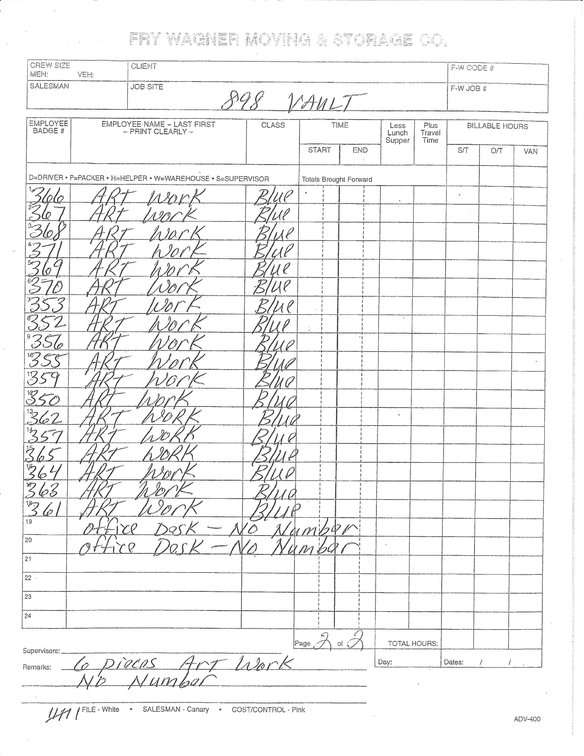 FRY WAGNER MOVING & STORAGE CO.
CREW SIZE
MEN: VEH:
CLIENT
F-W CODE #
SALESMAN
JOB SITE
898 VAULT
F-W JOB #
EMPLOYEE BADGE #
EMPLOYEE NAME – LAST FIRST
– PRINT CLEARLY –
CLASS
TIME
START END
Less Lunch Supper
Plus Travel Time
BILLABLE HOURS
S/T O/T VAN
D=DRIVER • P=PACKER • H=HELPER • W=WAREHOUSE • S=SUPERVISOR Totals Brought Forward
366 ART Work Blue
367 ART Work Blue
368 ART Work Blue
371 ART Work Blue
369 ART Work Blue
370 ART Work Blue
353 ART Work Blue
352 ART Work Blue
356 ART Work Blue
355 ART Work Blue
359 ART Work Blue
350 ART Work Blue
362 ART WORK Blue
357 ART WORK Blue
365 ART Work Blue
364 ART Work Blue
363 ART Work Blue
361 ART Work Blue
19 office Desk – No Number
20 office Desk – No Number
21
22
23
24
Page 2 of 2 TOTAL HOURS:
Supervisors:
Remarks: 6 pieces Art Work
No Number
Day: Dates: / /
FILE - White • SALESMAN - Canary • COST/CONTROL - Pink
ADV-400